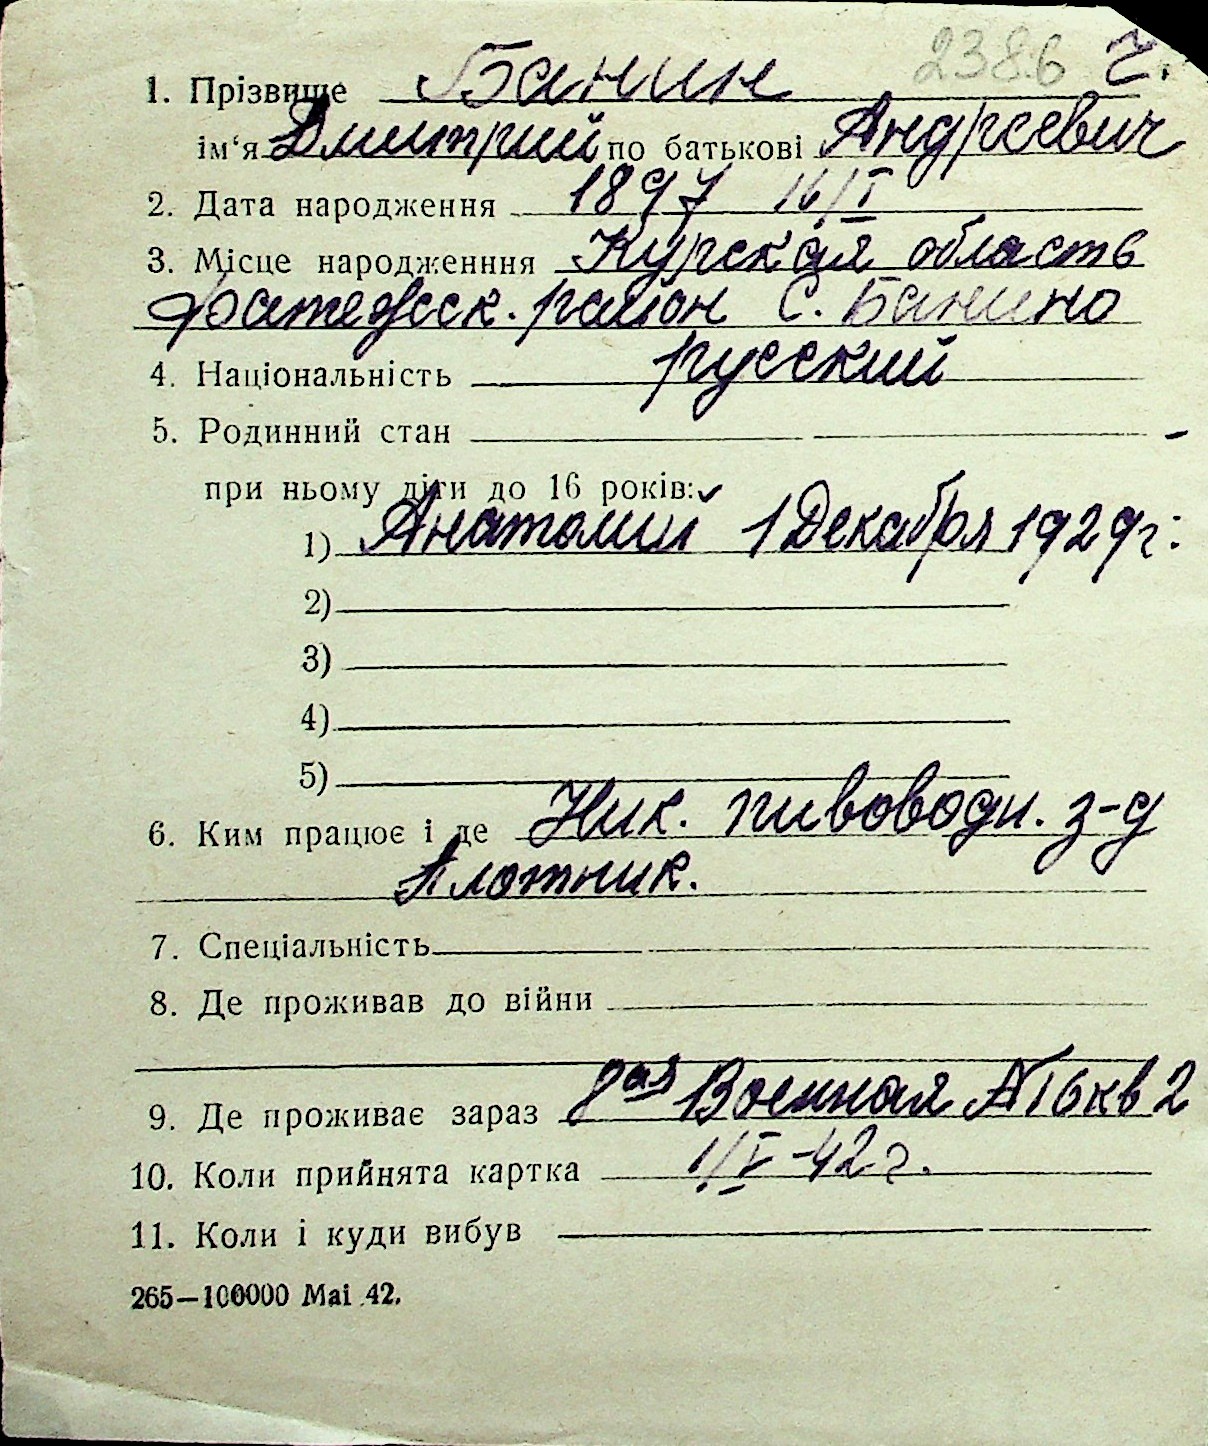 2386 Ч.
1. Прізвище Банин
ім‘я Дмитрий по батькові Андреевич
2. Дата народження 1897 16/I
3. Місце народженння Курская область
Фатежск. район С. Банино
4. Національність русский
5. Родинний стан —
при ньому діти до 16 років:
1) Анатолий 1 Декабря 1929г:
2)
3)
4)
5)
6. Ким працює і де Ник. пивоводн. з-д
Плотник.
7. Спеціальність
8. Де проживав до війни
9. Де проживає зараз 8ая Военная 16 кв 2
10. Коли прийнята картка 1/V-42г.
11. Коли і куди вибув
265—100000 Mai 42.